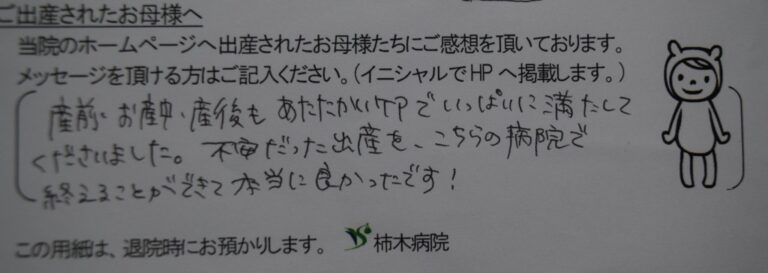 ご出産されたお母様へ
当院のホームページへ出産されたお母様たちにご感想を頂いております。
メッセージを頂ける方はご記入ください。(イニシャルでHPへ掲載します。)
産前・お産中・産後も あたたかいケアでいっぱいに満たして
くださいました。不安だった出産を、こちらの病院で
終えることができて本当に良かったです!
この用紙は、退院時にお預かりします。 柿木病院